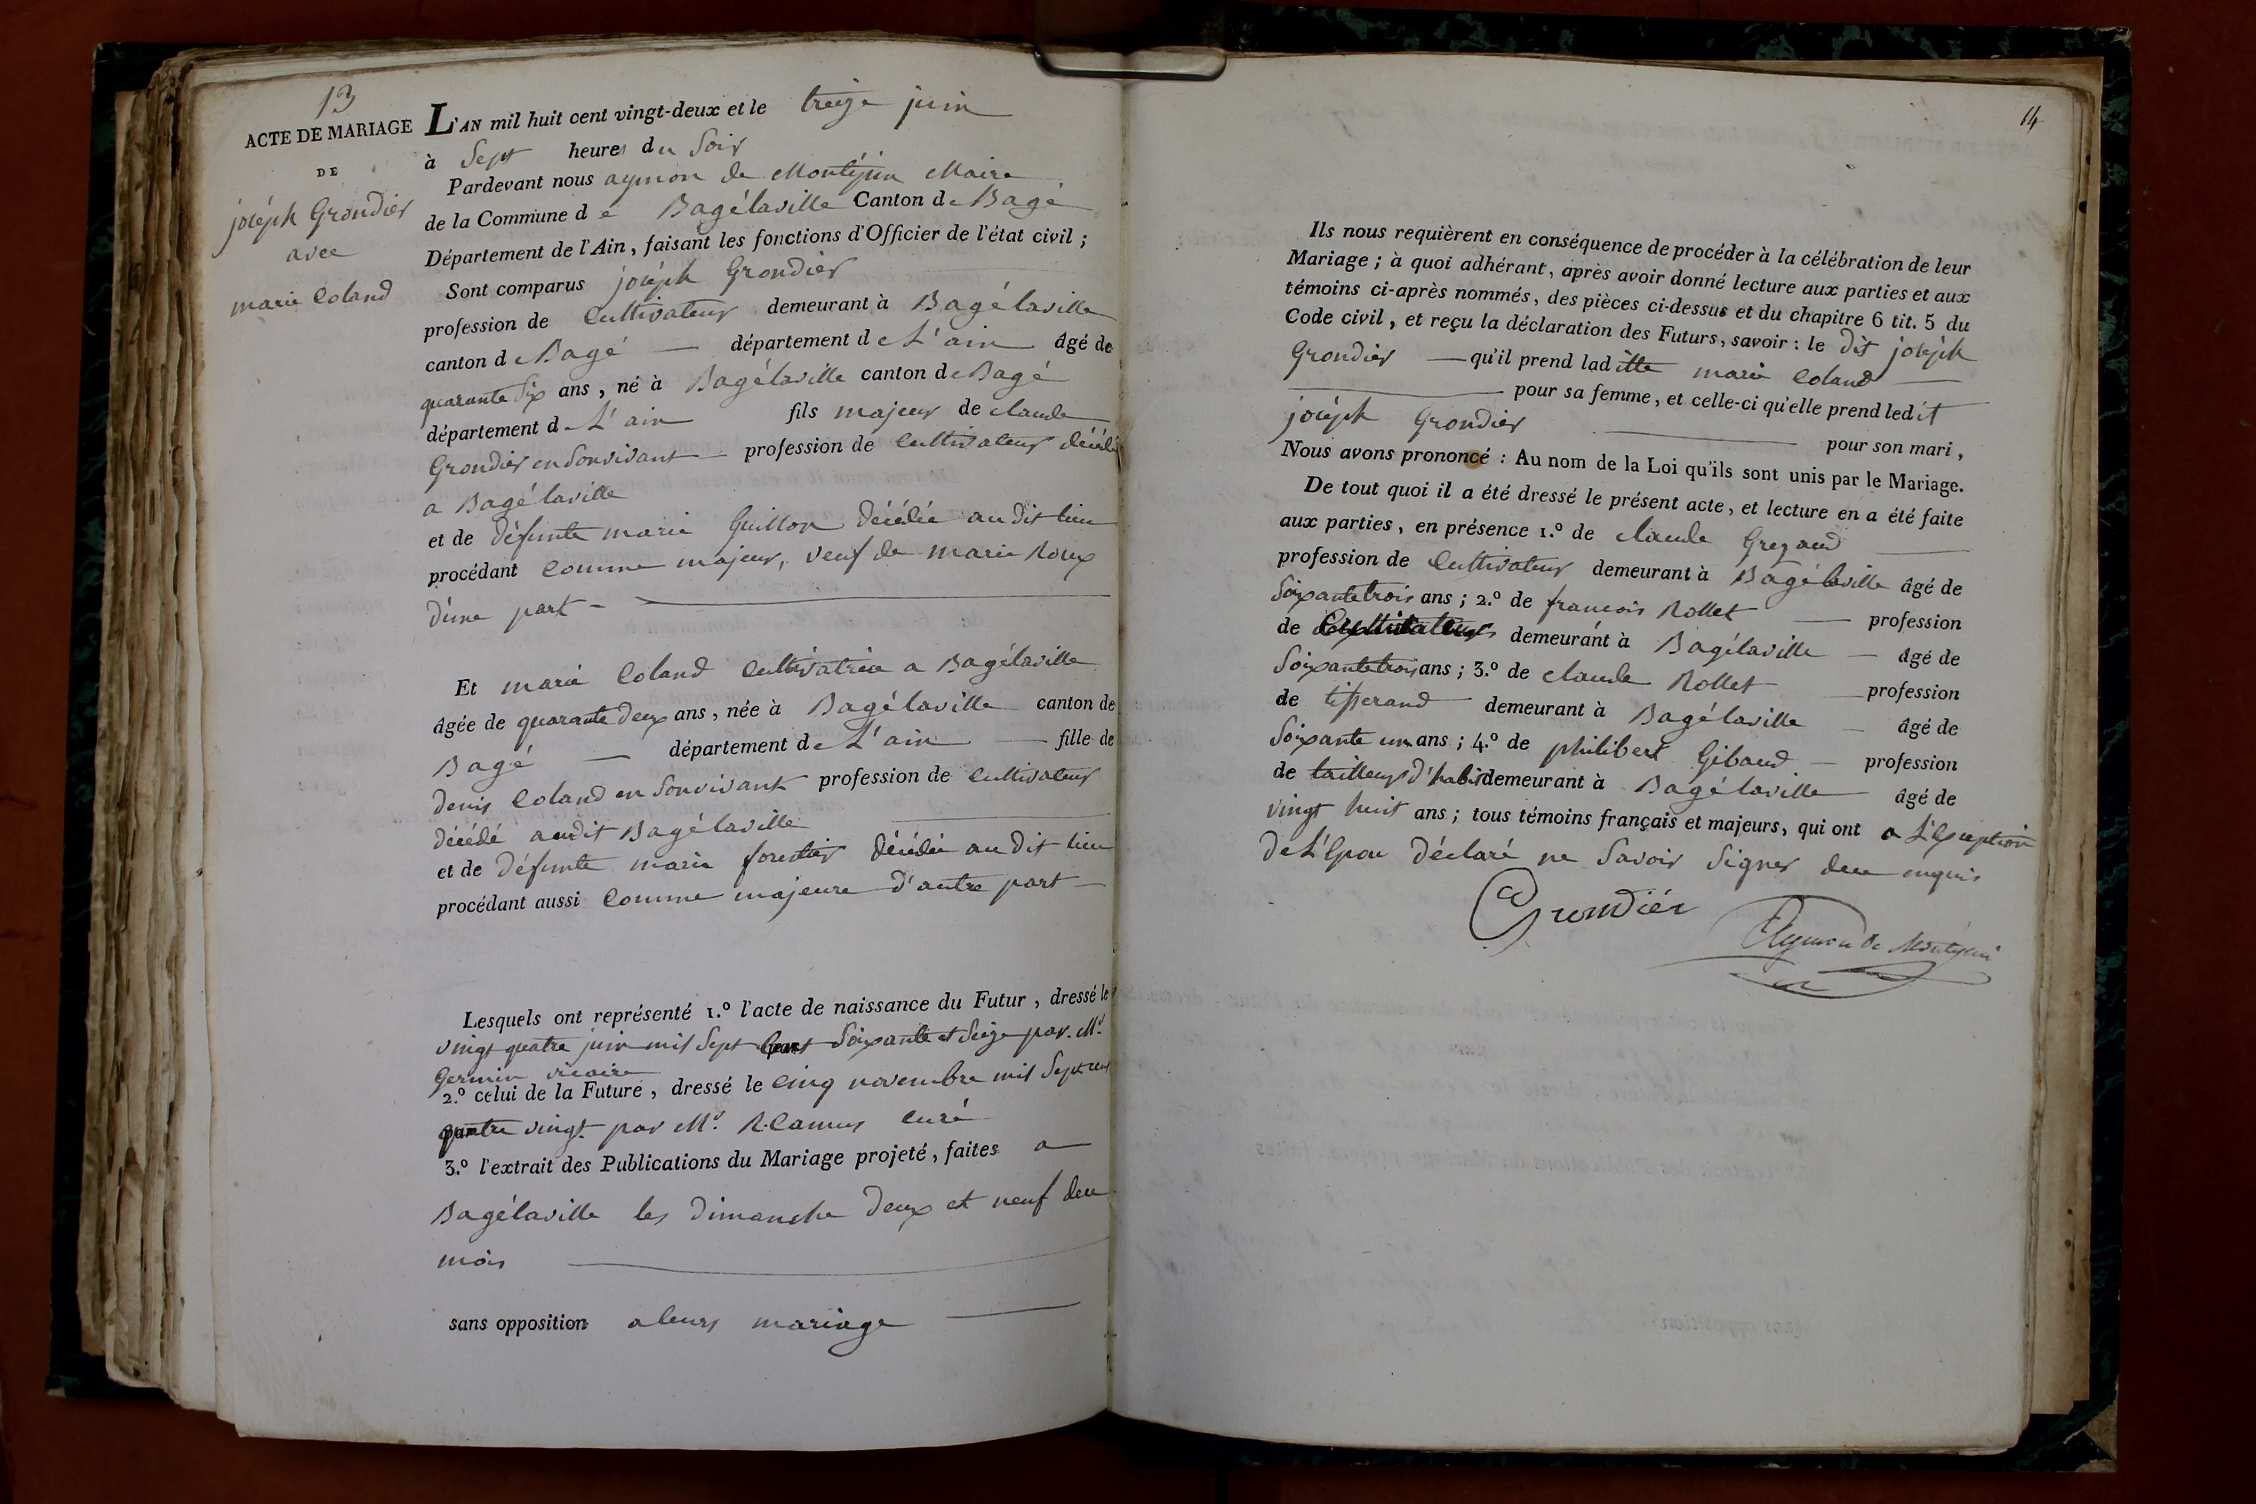 13
ACTE DE MARIAGE
DE
joséph Grondier
avec
marie Coland
L'AN mil huit cent vingt-deux et le treize juin
à Sept heures du Soir
Pardevant nous aymon de Montépin Maire
de la Commune de Bagélaville Canton de Bagé
Département de l'Ain, faisant les fonctions d'Officier de l'état civil ;
Sont comparus joséph Grondier
profession de Cultivateur demeurant à Bagélaville
canton de Bagé — département de L'ain âgé de
quarante Six ans, né à Bagélaville canton de Bagé
département de L'ain fils majeur de claude
Grondier en Sonvivant profession de Cultivateur décédé
a Bagélaville
et de défunte marie Guillon décédée au dit lieu
procédant Comme majeur, veuf de marie Roux
d'une part —
Et marie Coland Cultivatrice a Bagélaville
âgée de quarante deux ans, née à Bagélaville canton de
Bagé — département de L'ain — fille de
denis Coland en Sonvivant profession de Cultivateur
décédé audit Bagélaville
et de défunte marie forestier décédée au dit lieu
procédant aussi Comme majeure d'autre part —
Lesquels ont représenté 1.º l'acte de naissance du Futur, dressé le
vingt quatre juin mil Sept Cent Soixante et Seize par Mr
Germin vicaire
2.º celui de la Future, dressé le Cinq novembre mil Sept cent
quatre vingt par Mr. R. Camus Curé
3.º l'extrait des Publications du Mariage projeté, faites a
Bagélaville les dimanche deux et neuf du
mois
sans opposition a leurs mariage
14
Ils nous requièrent en conséquence de procéder à la célébration de leur
Mariage ; à quoi adhérant, après avoir donné lecture aux parties et aux
témoins ci-après nommés, des pièces ci-dessus et du chapitre 6 tit. 5 du
Code civil, et reçu la déclaration des Futurs, savoir : le dit joséph
Grondier — qu'il prend laditte marie Coland —
pour sa femme, et celle-ci qu'elle prend ledit
joséph Grondier — pour son mari,
Nous avons prononcé : Au nom de la Loi qu'ils sont unis par le Mariage.
De tout quoi il a été dressé le présent acte, et lecture en a été faite
aux parties, en présence 1.º de claude Grezaud
profession de Cultivateur demeurant à Bagélaville âgé de
Soixantetrois ans ; 2.º de francois Rollet — profession
de Cultivateur demeurant à Bagélaville — âgé de
Soixantetrois ans ; 3.º de claude Rollet — profession
de tisserand demeurant à Bagélaville — âgé de
Soixante un ans ; 4.º de philibert Gibaud — profession
de tailleur d'habis demeurant à Bagélaville âgé de
vingt huit ans ; tous témoins français et majeurs, qui ont a L'Exception
de L'Epou déclaré ne Savoir Signer de ce enquis
Grondier
Aymon de Montépin